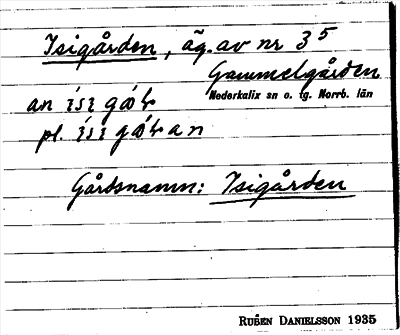 Isigården, äg. av nr 3⁵
Gammelgården
Nederkalix sn o. tg. Norrb. län
an
pl.
Gårdsnamn: Isigården
RUBEN DANIELSSON 1935